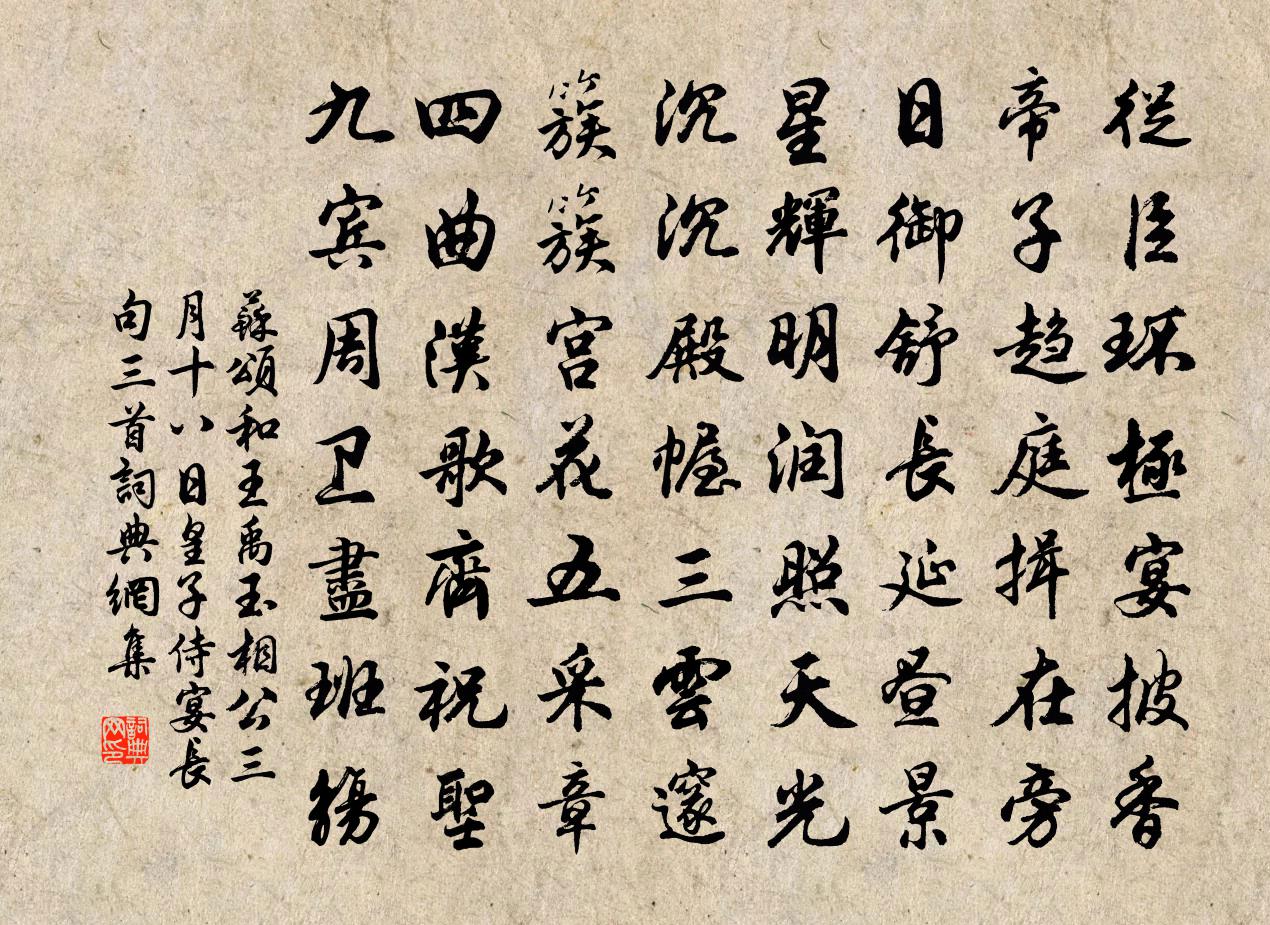 從臣环極宴披香
帝子趋庭揖在旁
日御舒長延昼景
星輝明润照天光
沉沉殿幄三雲邃
簇簇宫花五采章
四曲漢歌齊祝聖
九宾周卫盡班觴
蘇頌和王禹玉相公三
月十八日皇子侍宴長
句三首詞典網集
詞典
网印